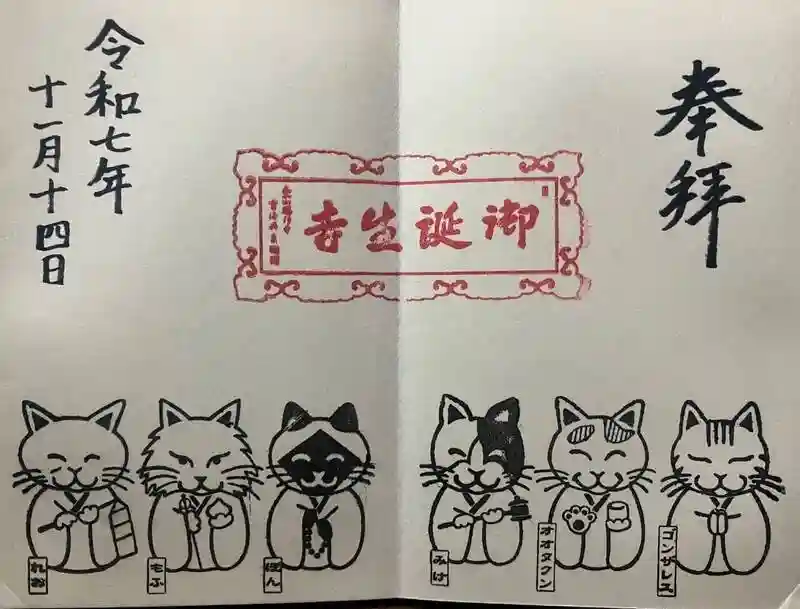 奉拝
御誕生寺
令和七年
十一月十四日
ゴンザレス
オオヌクン
みけ
ぽん
もふ
れお